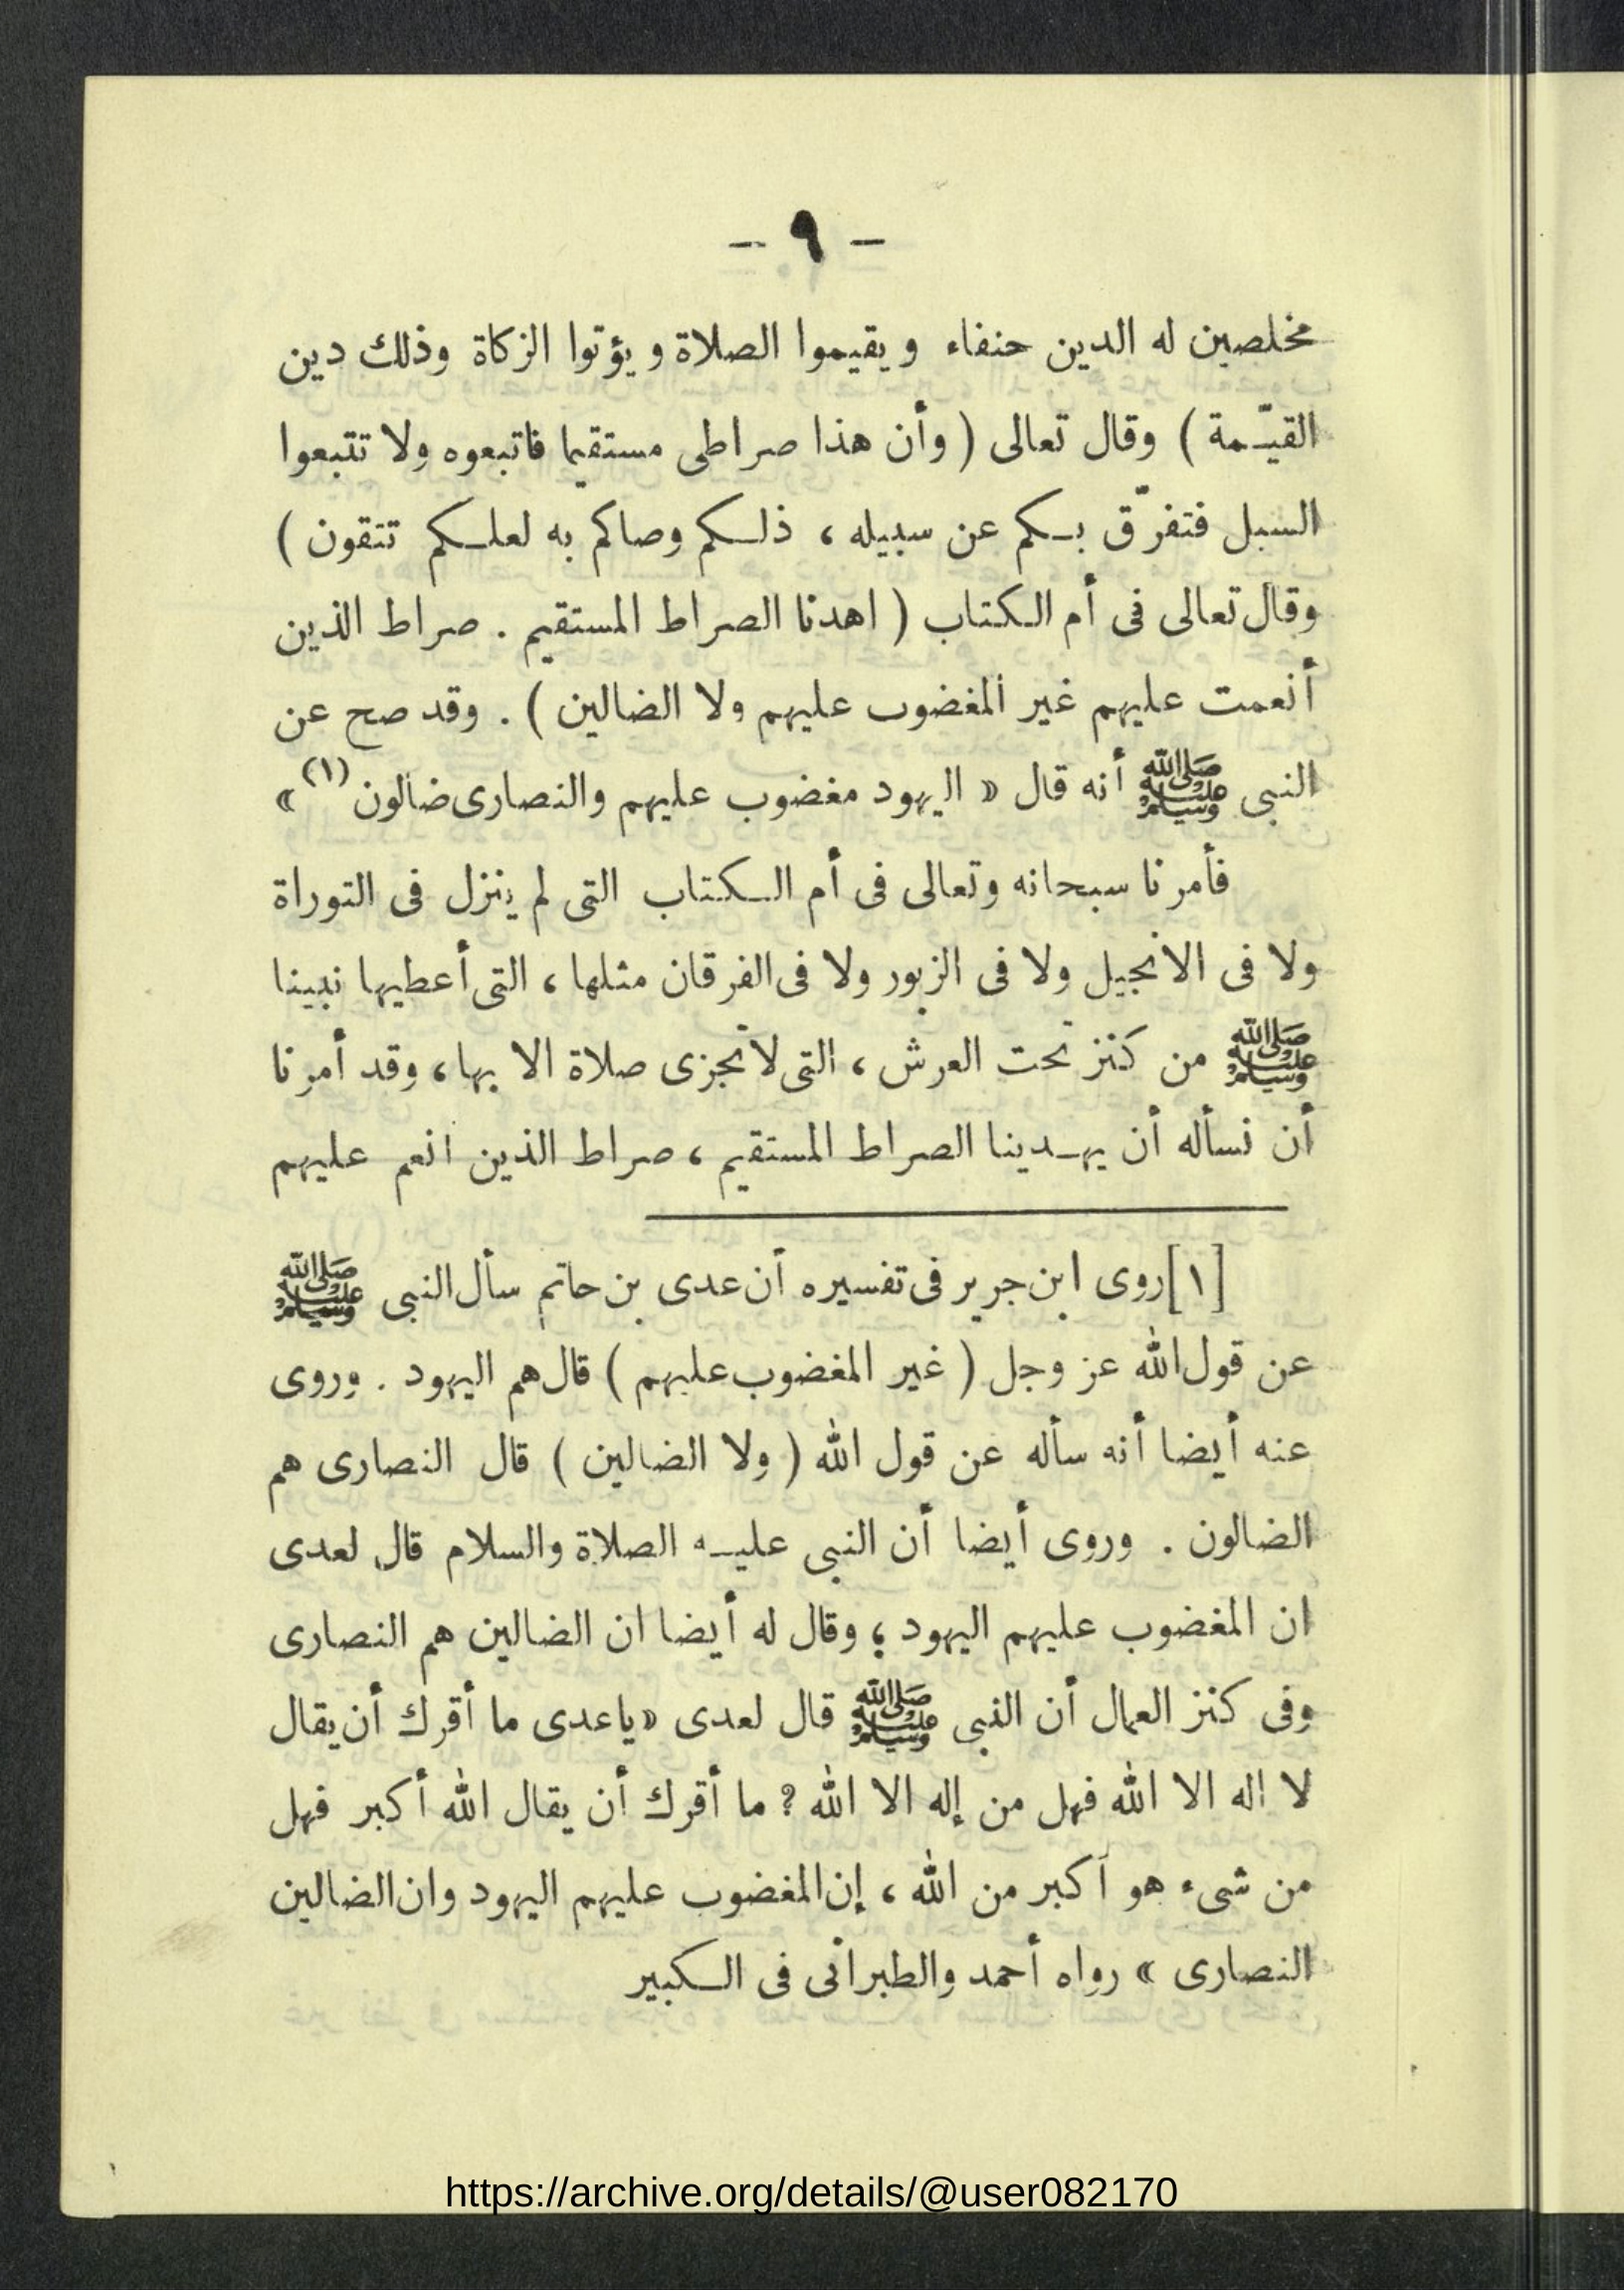 – ٩ –
مخلصين له الدين حنفاء ويقيموا الصلاة ويؤتوا الزكاة وذلك دين
القيّمة ) وقال تعالى ( وأن هذا صراطى مستقيما فاتبعوه ولا تتبعوا
السبل فتفرّق بكم عن سبيله ، ذلكم وصاكم به لعلكم تتقون )
وقال تعالى فى أم الكتاب ( اهدنا الصراط المستقيم . صراط الذين
أنعمت عليهم غير المغضوب عليهم ولا الضالين ) . وقد صح عن
النبى ﷺ أنه قال « اليهود مغضوب عليهم والنصارى ضالون (١) »
فأمرنا سبحانه وتعالى فى أم الكتاب التى لم ينزل فى التوراة
ولا فى الانجيل ولا فى الزبور ولا فى الفرقان مثلها ، التى أعطيها نبينا
ﷺ من كنز تحت العرش ، التى لاتجزى صلاة الا بها ، وقد أمرنا
أن نسأله أن يهدينا الصراط المستقيم ، صراط الذين انعم عليهم
[١] روى ابن جرير فى تفسيره أن عدى بن حاتم سأل النبى ﷺ
عن قول الله عز وجل ( غير المغضوب عليهم ) قال هم اليهود . وروى
عنه أيضا أنه سأله عن قول الله ( ولا الضالين ) قال النصارى هم
الضالون . وروى أيضا أن النبى عليه الصلاة والسلام قال لعدى
ان المغضوب عليهم اليهود ؛ وقال له أيضا ان الضالين هم النصارى
وفى كنز العمال أن النبى ﷺ قال لعدى « ياعدى ما أفرك أن يقال
لا اله الا الله فهل من إله الا الله ؟ ما أفرك أن يقال الله أكبر فهل
من شىء هو أكبر من الله ، إن المغضوب عليهم اليهود وان الضالين
النصارى » رواه أحمد والطبرانى فى الكبير
https://archive.org/details/@user082170